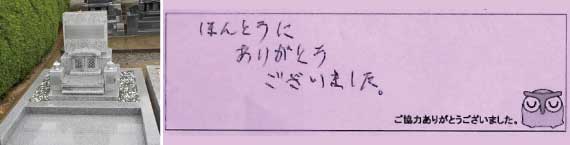 ほんとうに
ありがとう
ございました。
ご協力ありがとうございました。